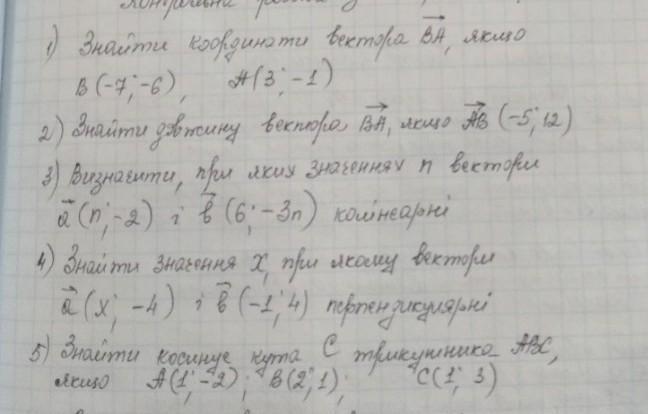 Контрольна робота з
1) Знайти координати вектора BA, якщо
B(-7; -6), A(3; -1)
2) Знайти довжину вектора BA, якщо AB (-5; 12)
3) Визначити, при яких значеннях n вектори
a (n; -2) і b (6; -3n) колінеарні
4) Знайти значення x, при якому вектори
a (x; -4) і b (-1; 4) перпендикулярні
5) Знайти косинус кута C трикутника ABC,
якщо A(1; -2); B(2; 1); C(1; 3)